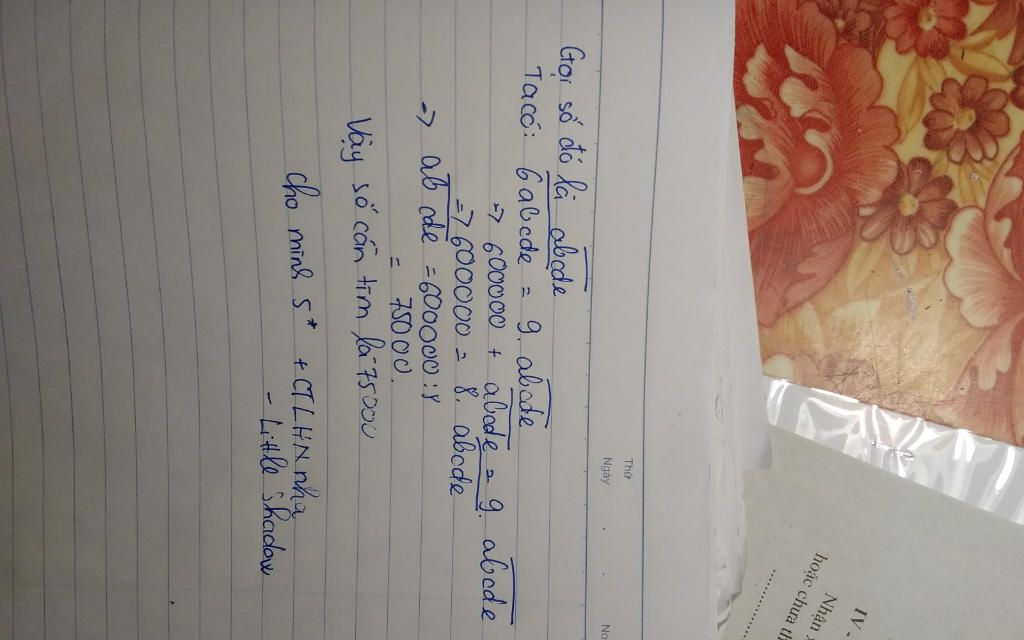 Thứ
Ngày . . No
Gọi số đó là abcde
Ta có: 6abcde = 9. abcde
=> 600000 + abcde = 9. abcde
=> 600000 = 8. abcde
=> abcde = 600000:8
= 75000.
Vậy số cần tìm là 75000
cho mình 5* + CTLHN nha
- Little Shadow
IV -
Nhận x
hoặc chưa th